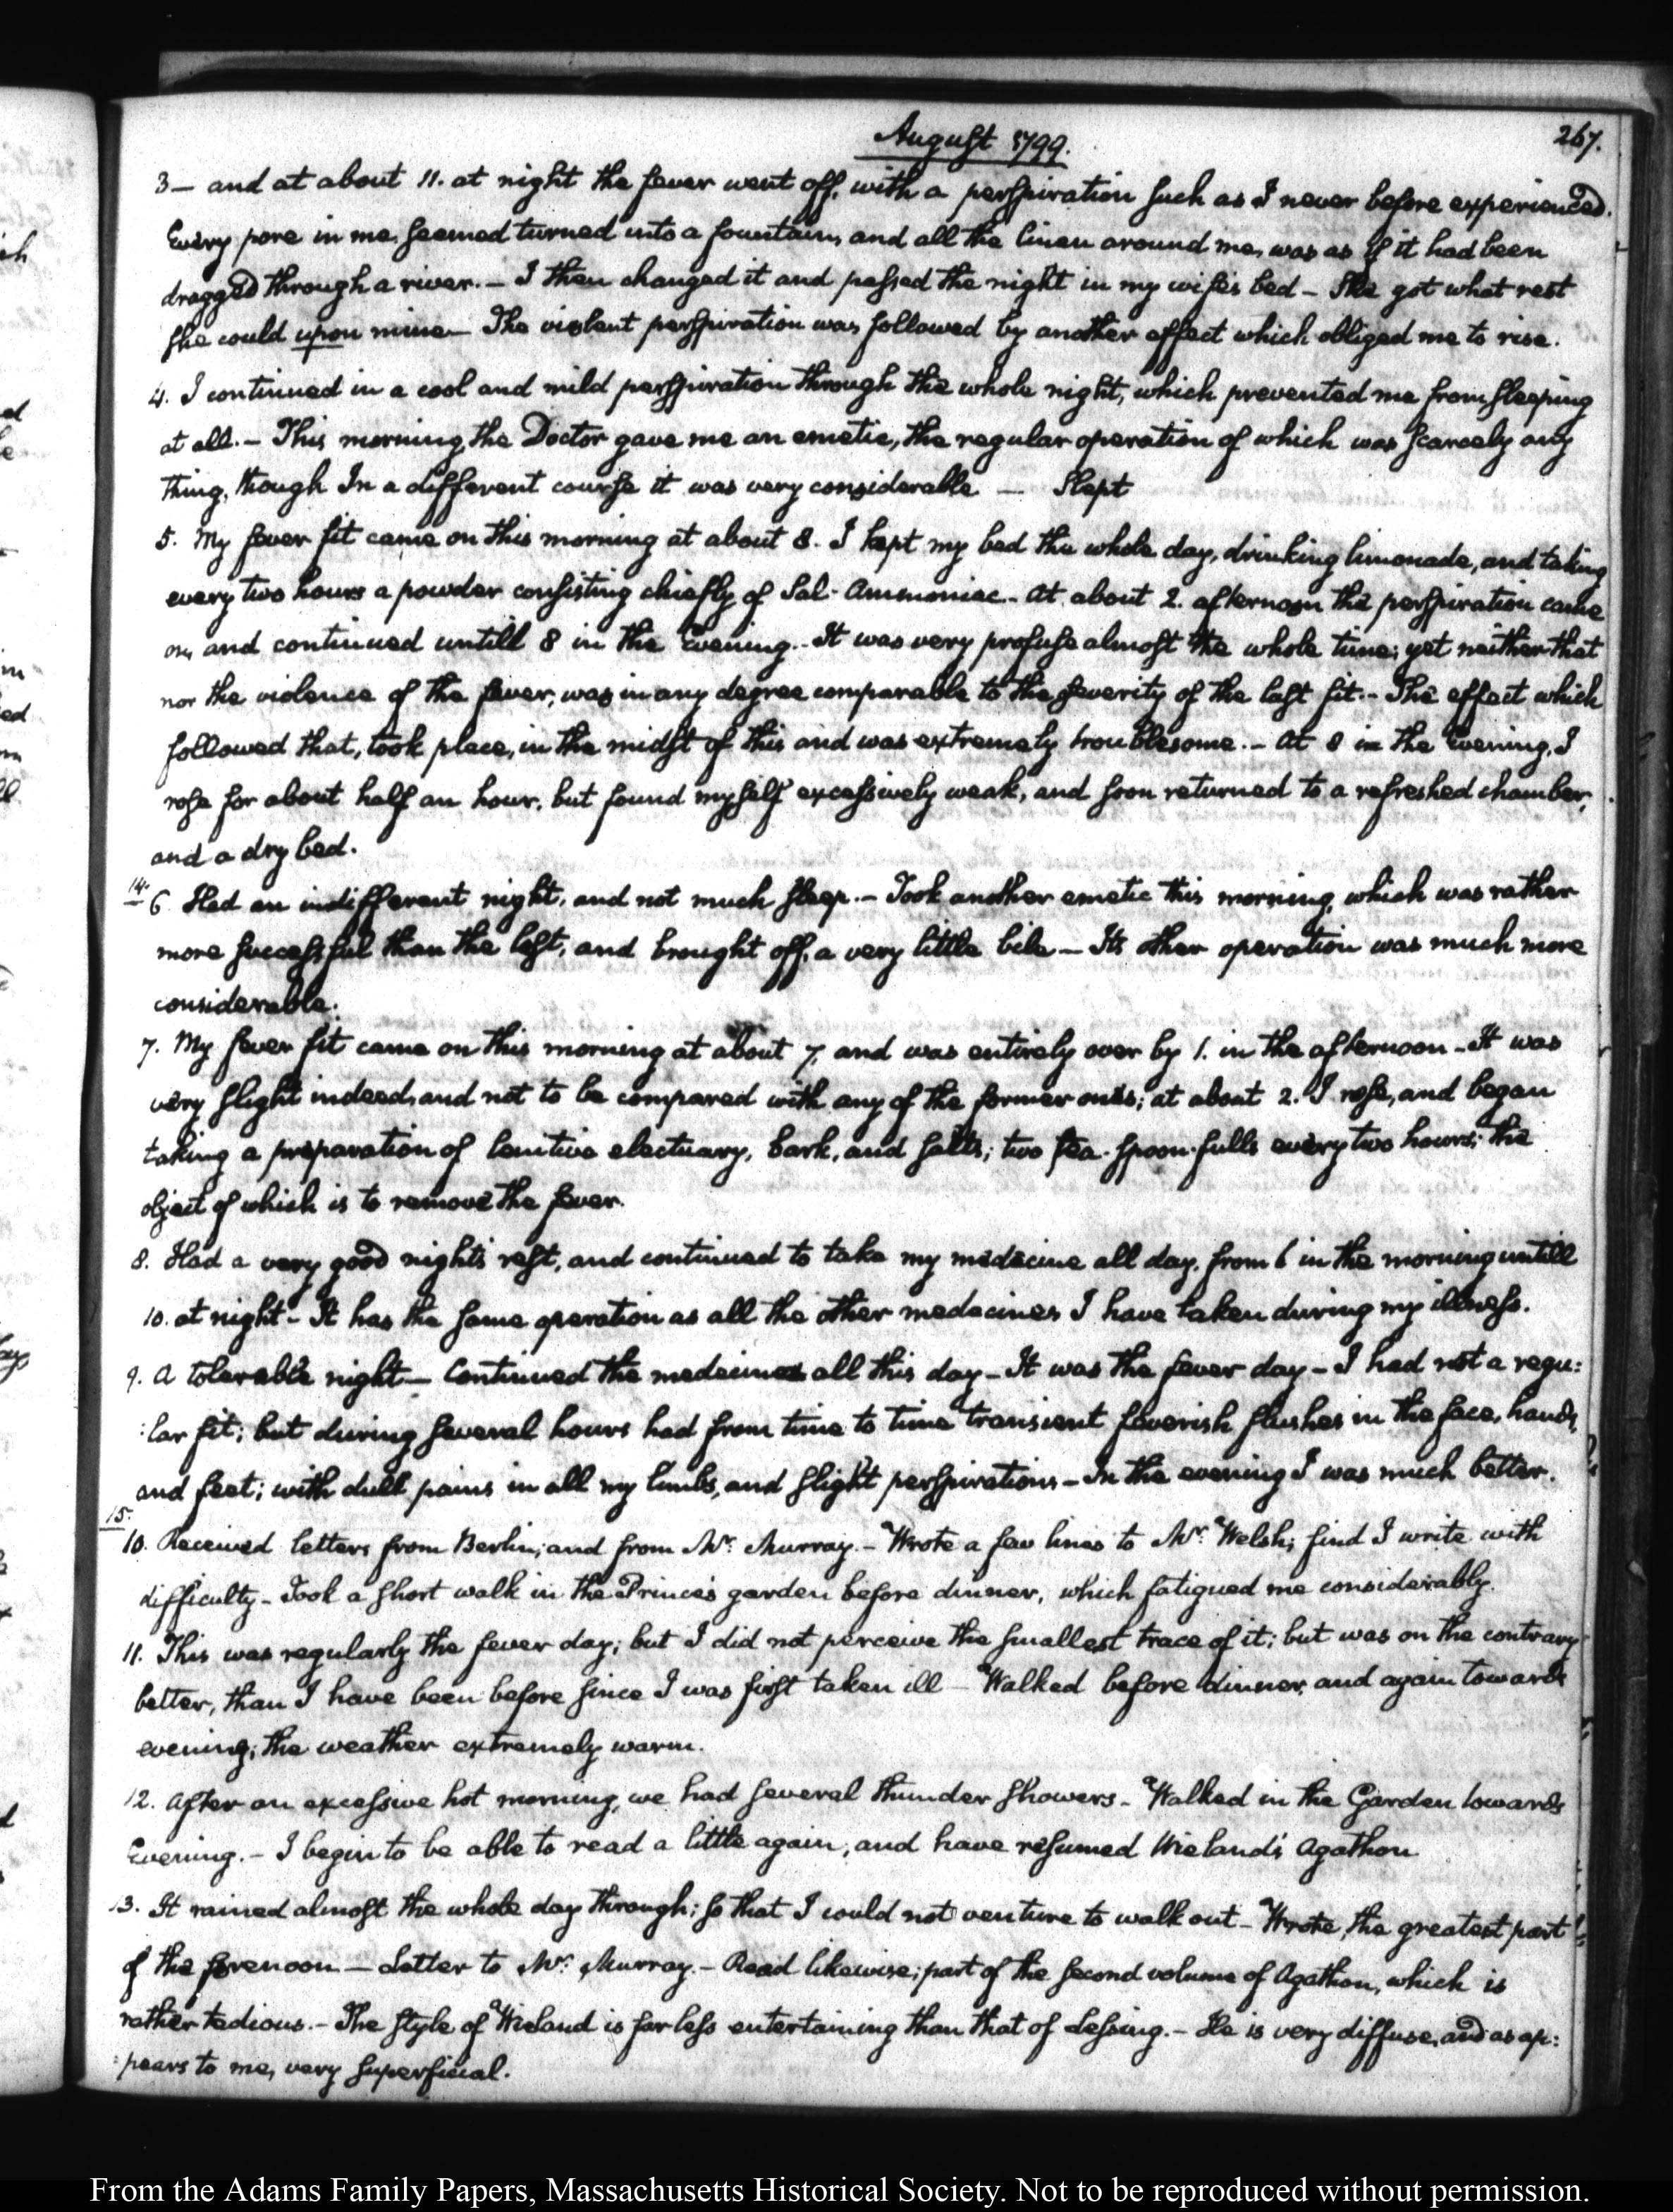 August 1799.
267.
3— and at about 11. at night the fever went off, with a perspiration such as I never before experienced.
Every pore in me, seemed turned into a fountain, and all the linen around me, was as if it had been
dragged through a river. — I then changed it and passed the night in my wife's bed — She got what rest
she could upon mine — The violent perspiration was followed by another effect which obliged me to rise.
4. I continued in a cool and mild perspiration through the whole night, which prevented me from sleeping
at all. — This morning, the Doctor gave me an emetic, the regular operation of which was scarcely any
thing, though In a different course it was very considerable — Slept
5. My fever fit came on this morning at about 8. I kept my bed the whole day, drinking limonade, and taking
every two hours a powder consisting chiefly of Sal-Ammoniac — At about 2. afternoon the perspiration came
on, and continued untill 8 in the Evening. — It was very profuse almost the whole time; yet neither that
nor the violence of the fever, was in any degree comparable to the severity of the last fit. — The effect which
followed that, took place, in the midst of this and was extremely troublesome. — At 8 in the Evening, I
rose for about half an hour, but found myself excessively weak, and soon returned to a refreshed chamber,
and a dry bed.
14.
6. Had an indifferent night, and not much sleep. — Took another emetic this morning, which was rather
more successful than the last, and brought off, a very little bile — Its other operation was much more
considerable.
7. My fever fit came on this morning at about 7, and was entirely over by 1. in the afternoon — It was
very slight indeed, and not to be compared with any of the former ones; at about 2. I rose, and began
taking a preparation of lenitive electuary, bark, and salts; two tea-spoon-fulls every two hours; the
object of which is to remove the fever.
8. Had a very good night's rest, and continued to take my medecine all day, from 6 in the morning untill
10. at night — It has the same operation as all the other medecines I have taken during my illness.
9. A tolerable night — Continued the medecines all this day — It was the fever day — I had not a regu:
:lar fit; but during several hours had from time to time transient feverish flushes in the face, hands,
and feet; with dull pains in all my limbs, and slight perspirations — In the evening I was much better.
15.
10. Received letters from Berlin, and from Mr. Murray. — Wrote a few lines to Mr. Welsh; find I write with
difficulty — Took a short walk in the Prince's garden before dinner, which fatigued me considerably.
11. This was regularly the fever day; but I did not perceive the smallest trace of it; but was on the contrary
better, than I have been before since I was first taken ill — Walked before dinner, and again towards
evening; the weather extremely warm.
12. After an excessive hot morning, we had several thunder showers — Walked in the Garden towards
Evening. — I begin to be able to read a little again, and have resumed Wieland's Agathon
13. It rained almost the whole day through; so that I could not venture to walk out — Wrote, the greatest part
of the forenoon — Letter to Mr. Murray. — Read likewise; part of the second volume of Agathon, which is
rather tedious. — The style of Wieland is far less entertaining than that of Lessing. — He is very diffuse, and as ap:
:pears to me, very superficial.
From the Adams Family Papers, Massachusetts Historical Society. Not to be reproduced without permission.